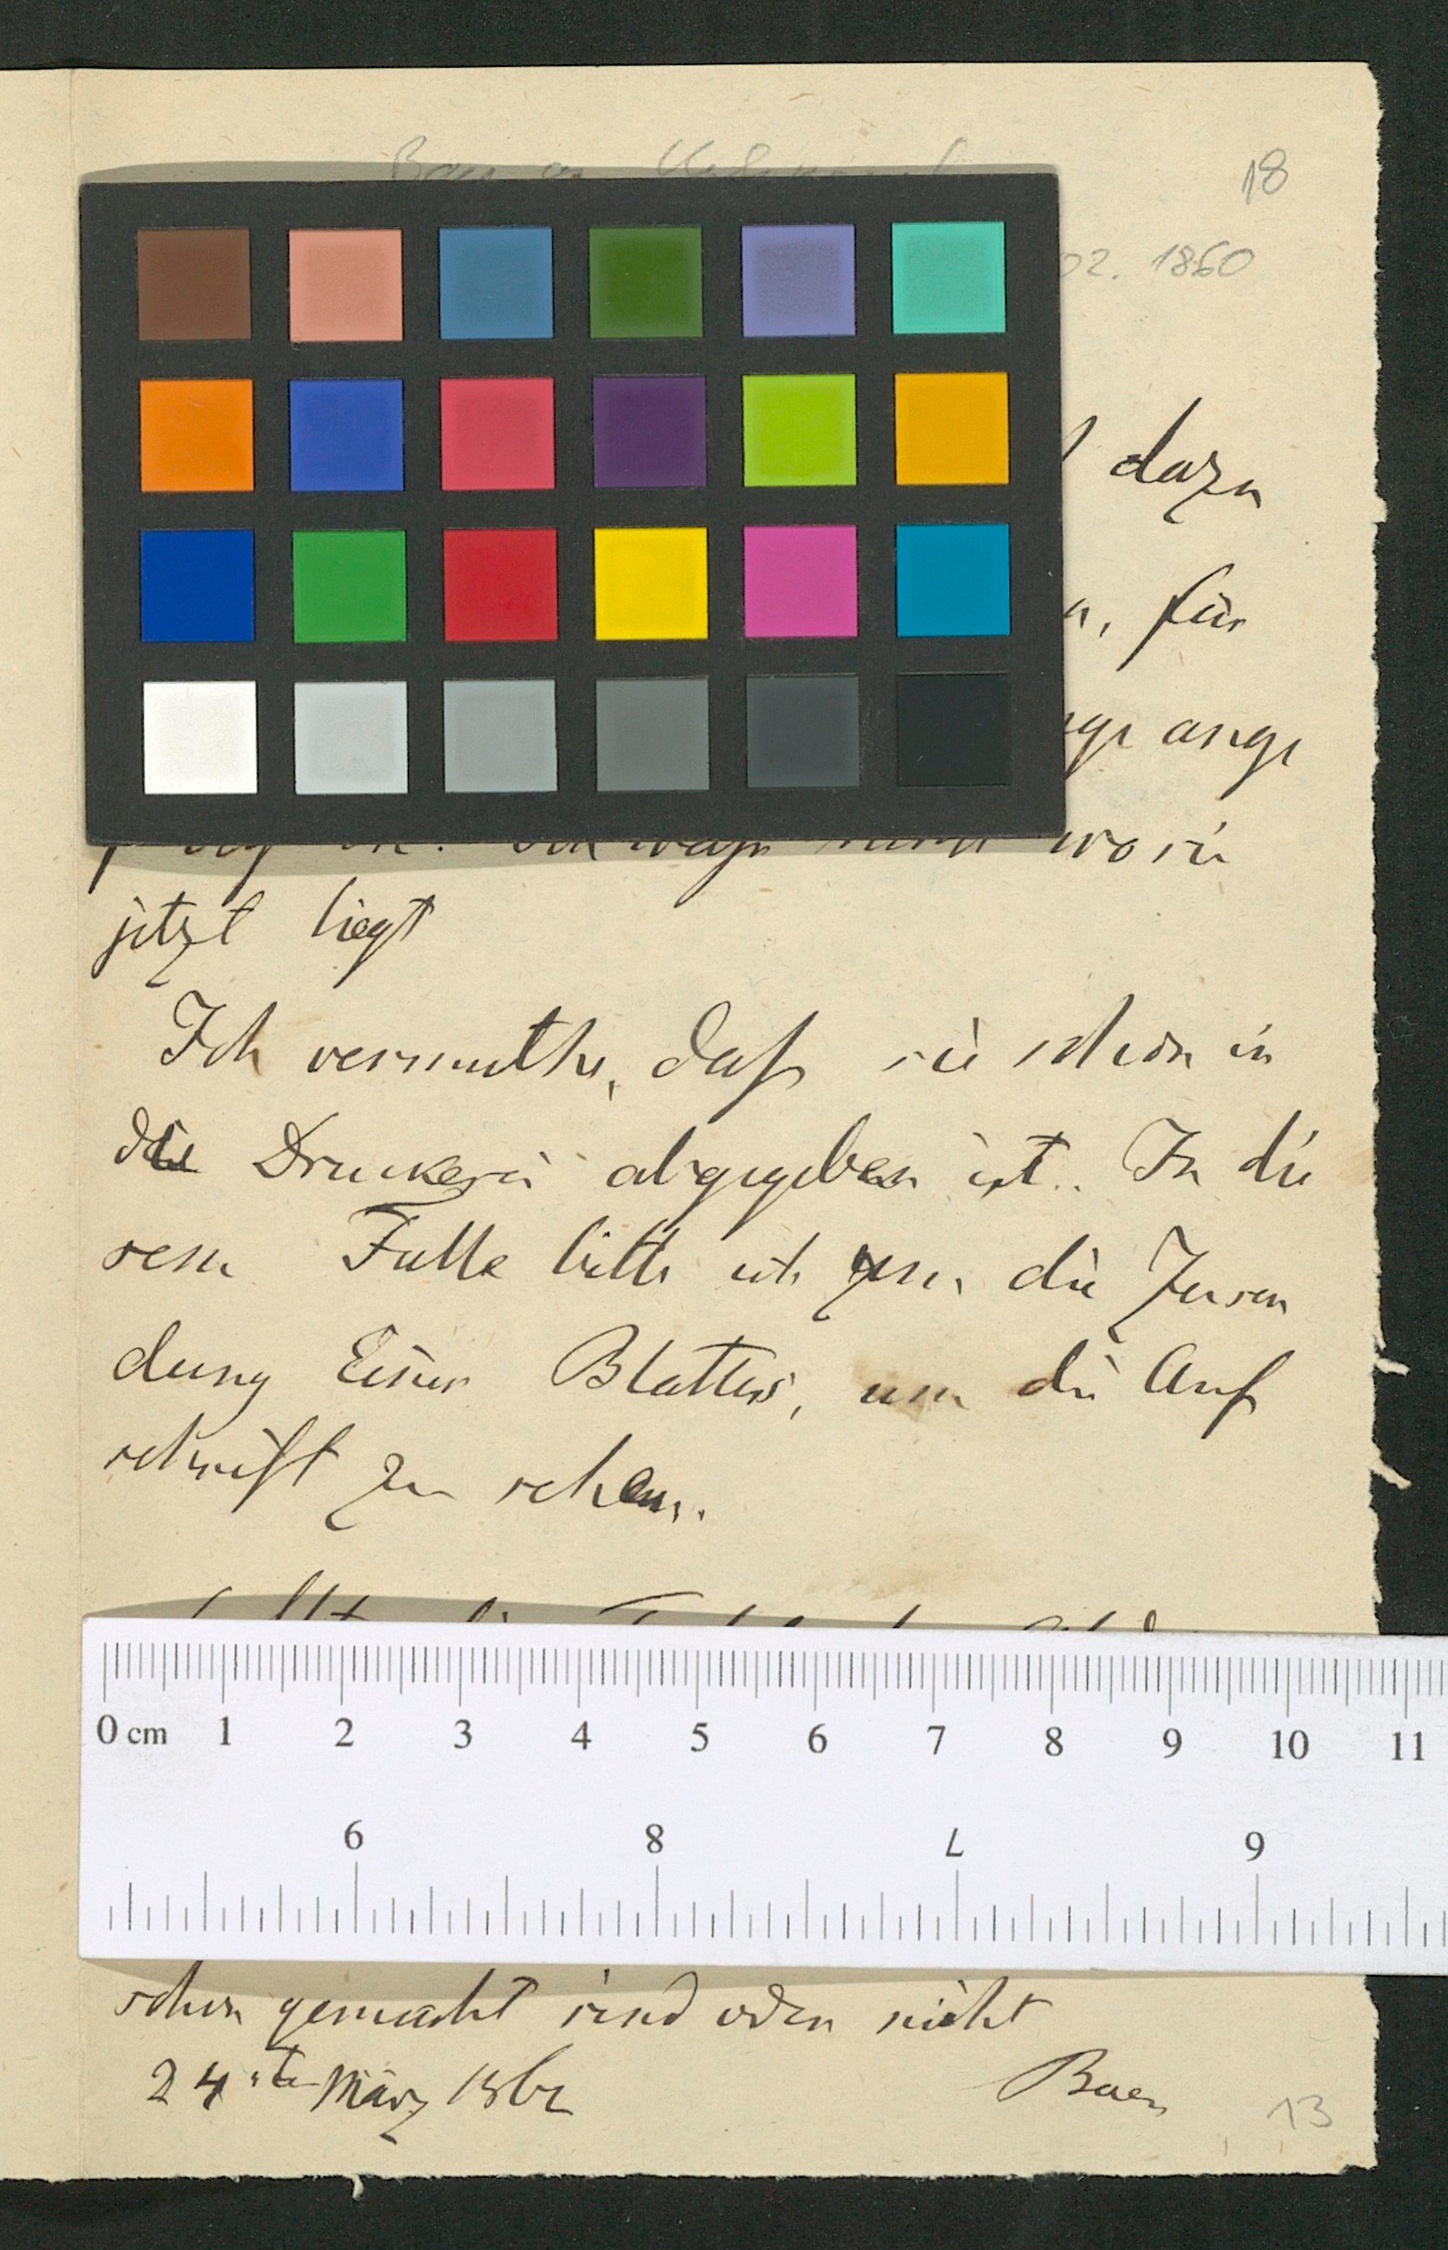 18
02. 1860
dazu
für
ange
wo sie
jetzt liegt
Ich vermuthe, daß sie schon in
die Druckerei abgegeben ist. In die
sem Falle bitte ich um die Zusen
dung Eines Blattes, um die Auf
schrift zu sehen.
0 cm 1 2 3 4 5 6 7 8 9 10 11
6 8 7 9
schon gemacht sind oder nicht
24ste März 1862 Baer
13